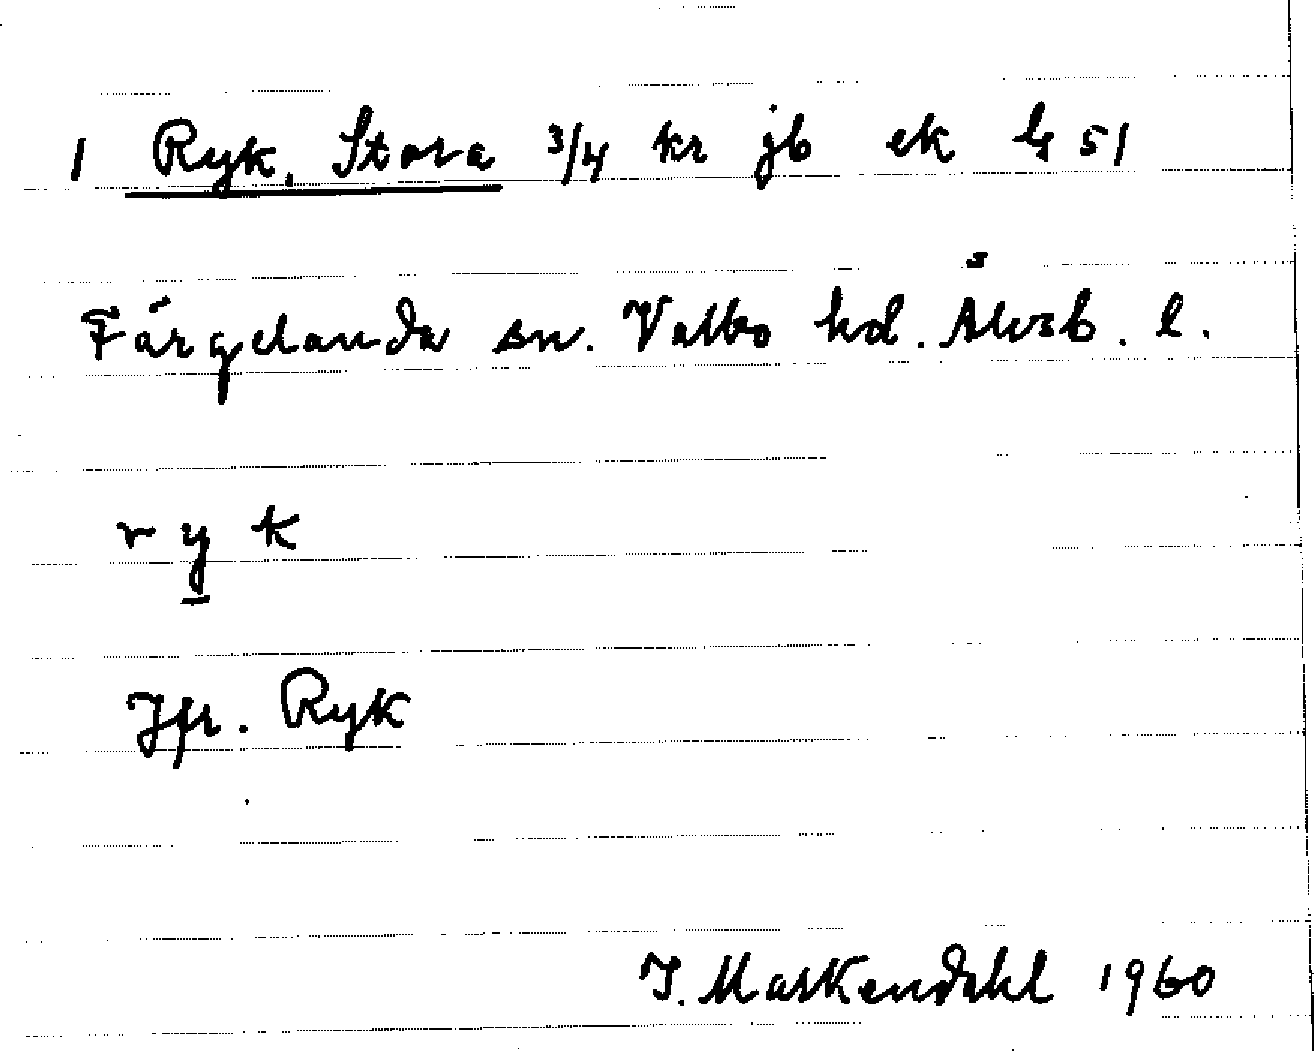 1 Ryk, Stora 3/4 kr jb ek bl 51
Färgelanda sn. Valbo hd. Älvsb. l.
r y k
Jfr. Ryk
J. Markendahl 1960